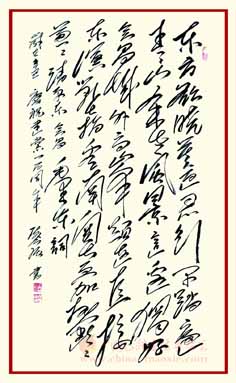 东方欲晓莫道君行早踏遍
青山人未老风景这边独好
会昌城外高峰颠连直接
东溟战士指看南粤更加郁郁
葱葱清平乐会昌毛泽东词
庆祝建党周年书